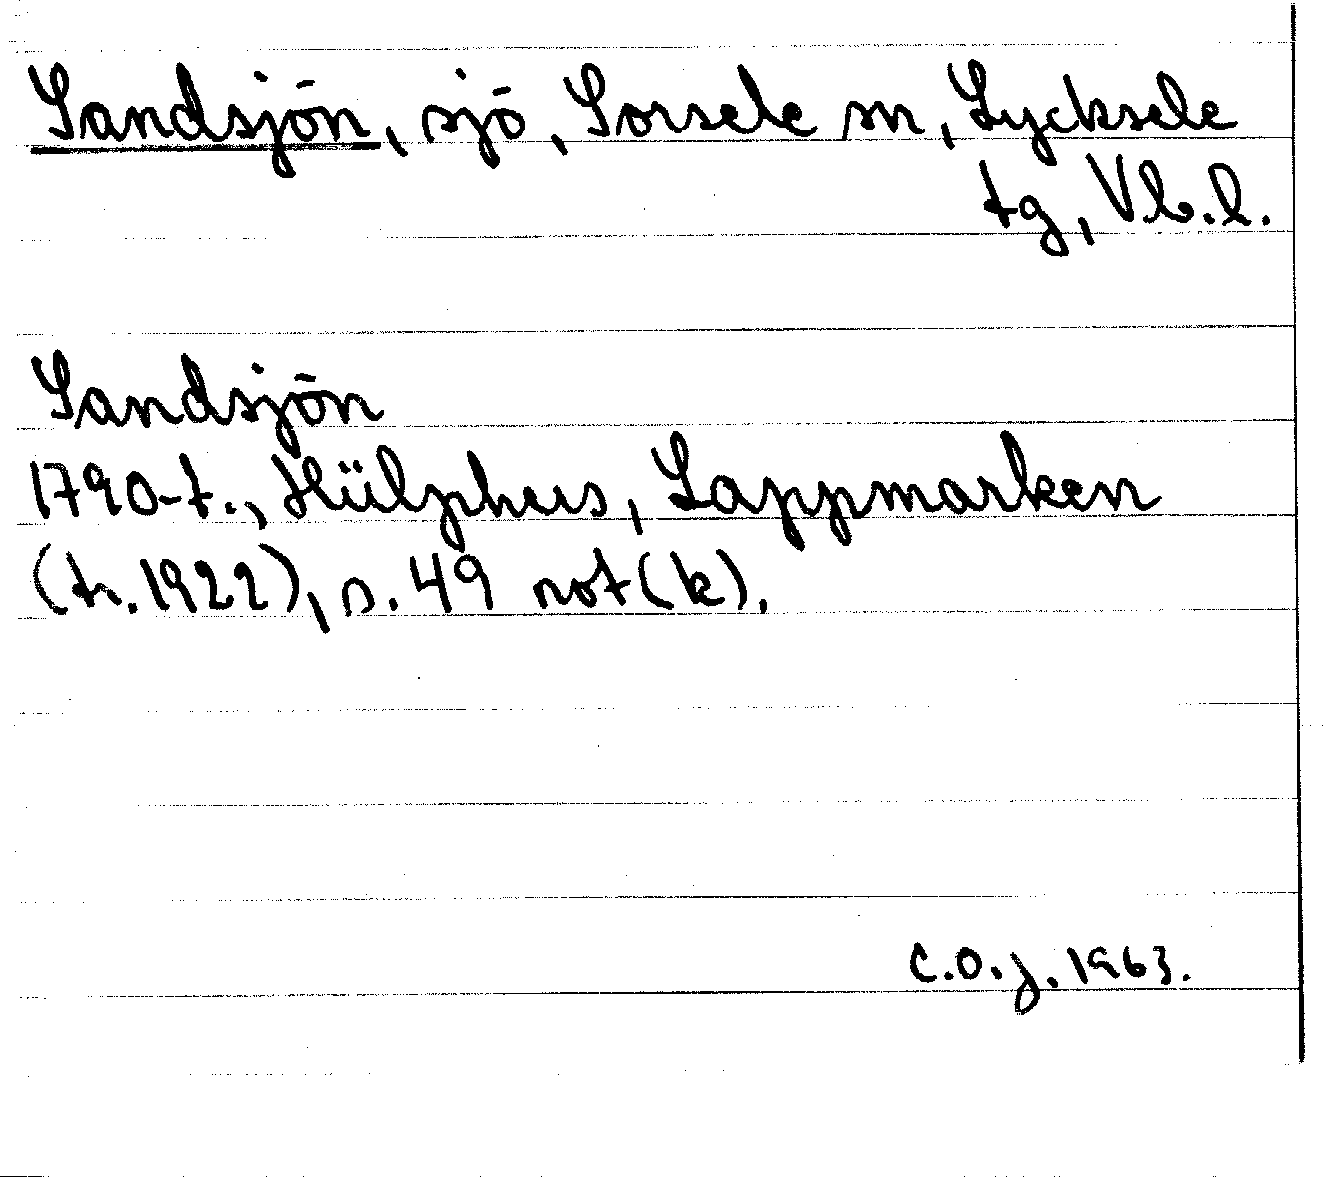 Sandsjön, sjö, Sorsele sn, Lycksele
tg, Vb.l.
Sandsjön
1790-t., Hülphers, Lappmarken
(tr. 1922), s. 49 not (k).
C.O.J. 1963.